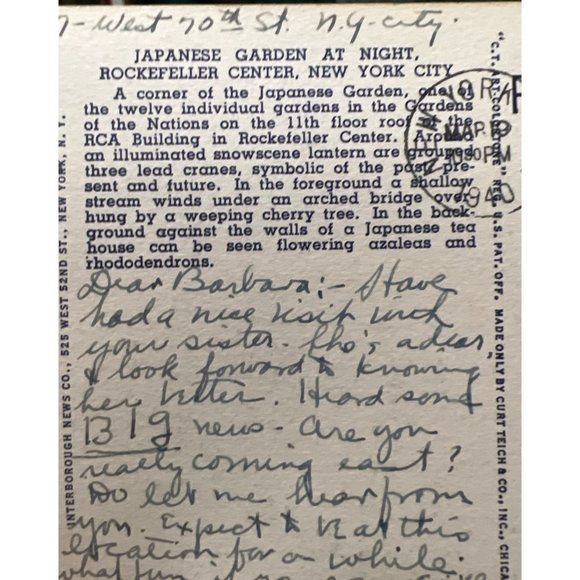 7- West 70th St. N.Y-city.
JAPANESE GARDEN AT NIGHT,
ROCKEFELLER CENTER, NEW YORK CITY
A corner of the Japanese Garden, one of
the twelve individual gardens in the Gardens
of the Nations on the 11th floor roof of the
RCA Building in Rockefeller Center. Around
an illuminated snowscene lantern are grouped
three lead cranes, symbolic of the past, pre-
sent and future. In the foreground a shallow
stream winds under an arched bridge over-
hung by a weeping cherry tree. In the back-
ground against the walls of a Japanese tea
house can be seen flowering azaleas and
rhododendrons.
Dear Barbara:- Have
had a nice visit with
your sister. She's a dear,
& look forward to knowing
her better. Heard some
BIG news - are you
really coming east?
Do let me hear from
you. Expect to be at this
location for a while.
what fun
NEW YORK
MAR
PM
1940
INTERBOROUGH NEWS CO., 525 WEST 52ND ST., NEW YORK, N. Y.
"C.T. ART-COLORTONE" REG. U.S. PAT. OFF. MADE ONLY BY CURT TEICH & CO., INC., CHICAG